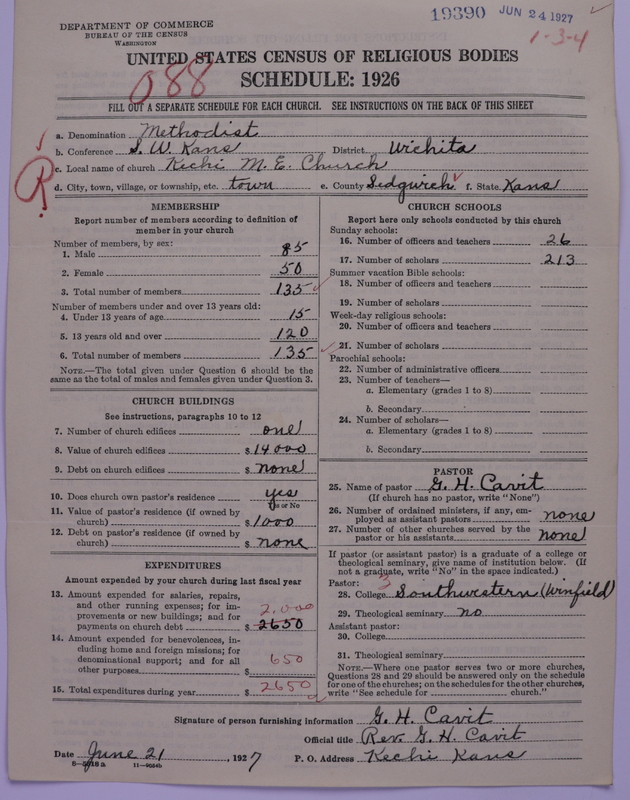 19390 JUN 24 1927
1-3-4
DEPARTMENT OF COMMERCE
BUREAU OF THE CENSUS
WASHINGTON
UNITED STATES CENSUS OF RELIGIOUS BODIES
SCHEDULE: 1926
088
FILL OUT A SEPARATE SCHEDULE FOR EACH CHURCH. SEE INSTRUCTIONS ON THE BACK OF THIS SHEET
a. Denomination Methodist
b. Conference S. W. Kans District Wichita
c. Local name of church Kechi M. E. Church
R
d. City, town, village, or township, etc. town e. County Sedgwick f. State Kans
MEMBERSHIP
Report number of members according to definition of
member in your church
Number of members, by sex:
1. Male 85
2. Female 50
3. Total number of members 135
Number of members under and over 13 years old:
4. Under 13 years of age 15
5. 13 years old and over 120
6. Total number of members 135
NOTE.—The total given under Question 6 should be the
same as the total of males and females given under Question 3.
CHURCH BUILDINGS
See instructions, paragraphs 10 to 12
7. Number of church edifices one
8. Value of church edifices $ 14000
9. Debt on church edifices $ none
10. Does church own pastor's residence yes
Yes or No
11. Value of pastor's residence (if owned by
church) $ 1000
12. Debt on pastor's residence (if owned by
church) $ none
EXPENDITURES
Amount expended by your church during last fiscal year
13. Amount expended for salaries, repairs,
and other running expenses; for im-
provements or new buildings; and for 2,000
payments on church debt $ 2650
14. Amount expended for benevolences, in-
cluding home and foreign missions; for
denominational support; and for all 650
other purposes $
15. Total expenditures during year $ 2650
CHURCH SCHOOLS
Report here only schools conducted by this church
Sunday schools:
16. Number of officers and teachers 26
17. Number of scholars 213
Summer vacation Bible schools:
18. Number of officers and teachers
19. Number of scholars
Week-day religious schools:
20. Number of officers and teachers
21. Number of scholars
Parochial schools:
22. Number of administrative officers
23. Number of teachers—
a. Elementary (grades 1 to 8)
b. Secondary
24. Number of scholars—
a. Elementary (grades 1 to 8)
b. Secondary
PASTOR
25. Name of pastor G. H. Cavit
(If church has no pastor, write "None")
26. Number of ordained ministers, if any, em-
ployed as assistant pastors none
27. Number of other churches served by the
pastor or his assistants none
If pastor (or assistant pastor) is a graduate of a college or
theological seminary, give name of institution below. (If
not a graduate, write "No" in the space indicated.)
Pastor: 3
28. College Southwestern (Winfield)
29. Theological seminary no
Assistant pastor:
30. College
31. Theological seminary
NOTE.—Where one pastor serves two or more churches,
Questions 28 and 29 should be answered only on the schedule
for one of the churches; on the schedules for the other churches,
write "See schedule for church."
Signature of person furnishing information G. H. Cavit
Official title Rev. G. H. Cavit
Date June 21, 1927 P. O. Address Kechi Kans
11—9054b